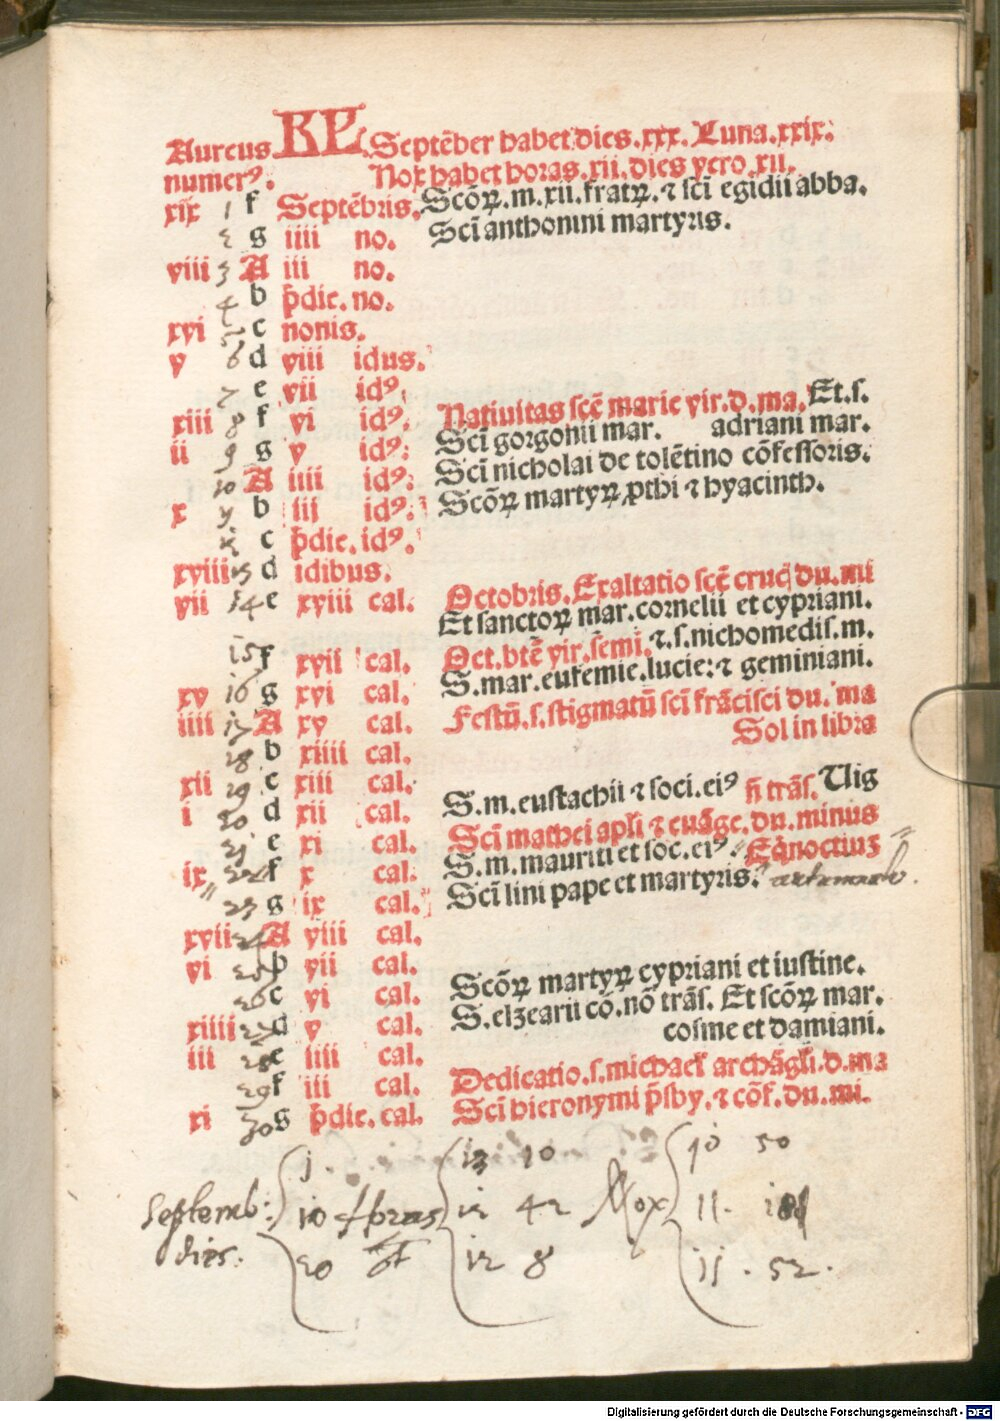 Aureus KL Septēber habet dies.xxx. Luna.xxix.
numerꝰ. Nox habet horas.xii.dies vero.xii.
xix 1 f Septēbris. Scōꝝ.m.xii.fratꝝ.⁊ sc̄i egidii abba.
2 g iiii no. Sc̄i anthonini martyris.
viii 3 A iii no.
4 b p̄die.no.
xvi 5 c nonis.
v 6 d viii idus.
7 e vii idꝰ.
xiii 8 f vi idꝰ. Natiuitas sc̄e marie vir.d.ma. Et.s.
adriani mar.
ii 9 g v idꝰ. Sc̄i gorgonii mar.
10 A iiii idꝰ. Sc̄i nicholai de tolētino cōfessoris.
x 11 b iii idꝰ. Scōꝝ martyꝝ ꝓthi ⁊ hyacinth.
12 c p̄die.idꝰ.
xviii 13 d idibus.
vii 14 e xviii cal. Octobris. Exaltatio sc̄e cruc̄ du.mi
Et sanctoꝝ mar.cornelii et cypriani.
15 f xvii cal. Oct.btē vir.semi.⁊.s.nichomedis.m.
xv 16 g xvi cal. S.mar.eufemie.lucie:⁊ geminiani.
iiii 17 A xv cal. Festū.s.stigmatū sc̄i frācisci du. ma
18 b xiiii cal. Sol in libra
xii 19 c xiii cal.
i 20 d xii cal. S.m.eustachii ⁊ soci.eiꝰ n̄ trās. Uig
21 e xi cal. Sc̄i mathei apl̄i ⁊ euāge.du.minus
ix 22 f x cal. S.m.mauriti et soc.eiꝰ. Eq̄noctiuꝫ
23 g ix cal. Sc̄i lini pape et martyris.
xvii 24 A viii cal.
vi 25 b vii cal.
26 c vi cal. Scōꝝ martyꝝ cypriani et iustine.
xiiii 27 d v cal. S.elzearii cō.nō trās. Et scōꝝ mar.
cosme et damiani.
iii 28 e iiii cal.
29 f iii cal. Dedicatio.s.michael archāgl̄i.d.ma
xi 30 g p̄die.cal. Sc̄i hieronymi p̄sby.⁊ cōf.du.mi.
1. 13 10 10 50
Septemb: 10 Horas 12 42 Nox 11. 18
dies. 20 12 8 11. 52.
Digitalisierung gefördert durch die Deutsche Forschungsgemeinschaft - DFG